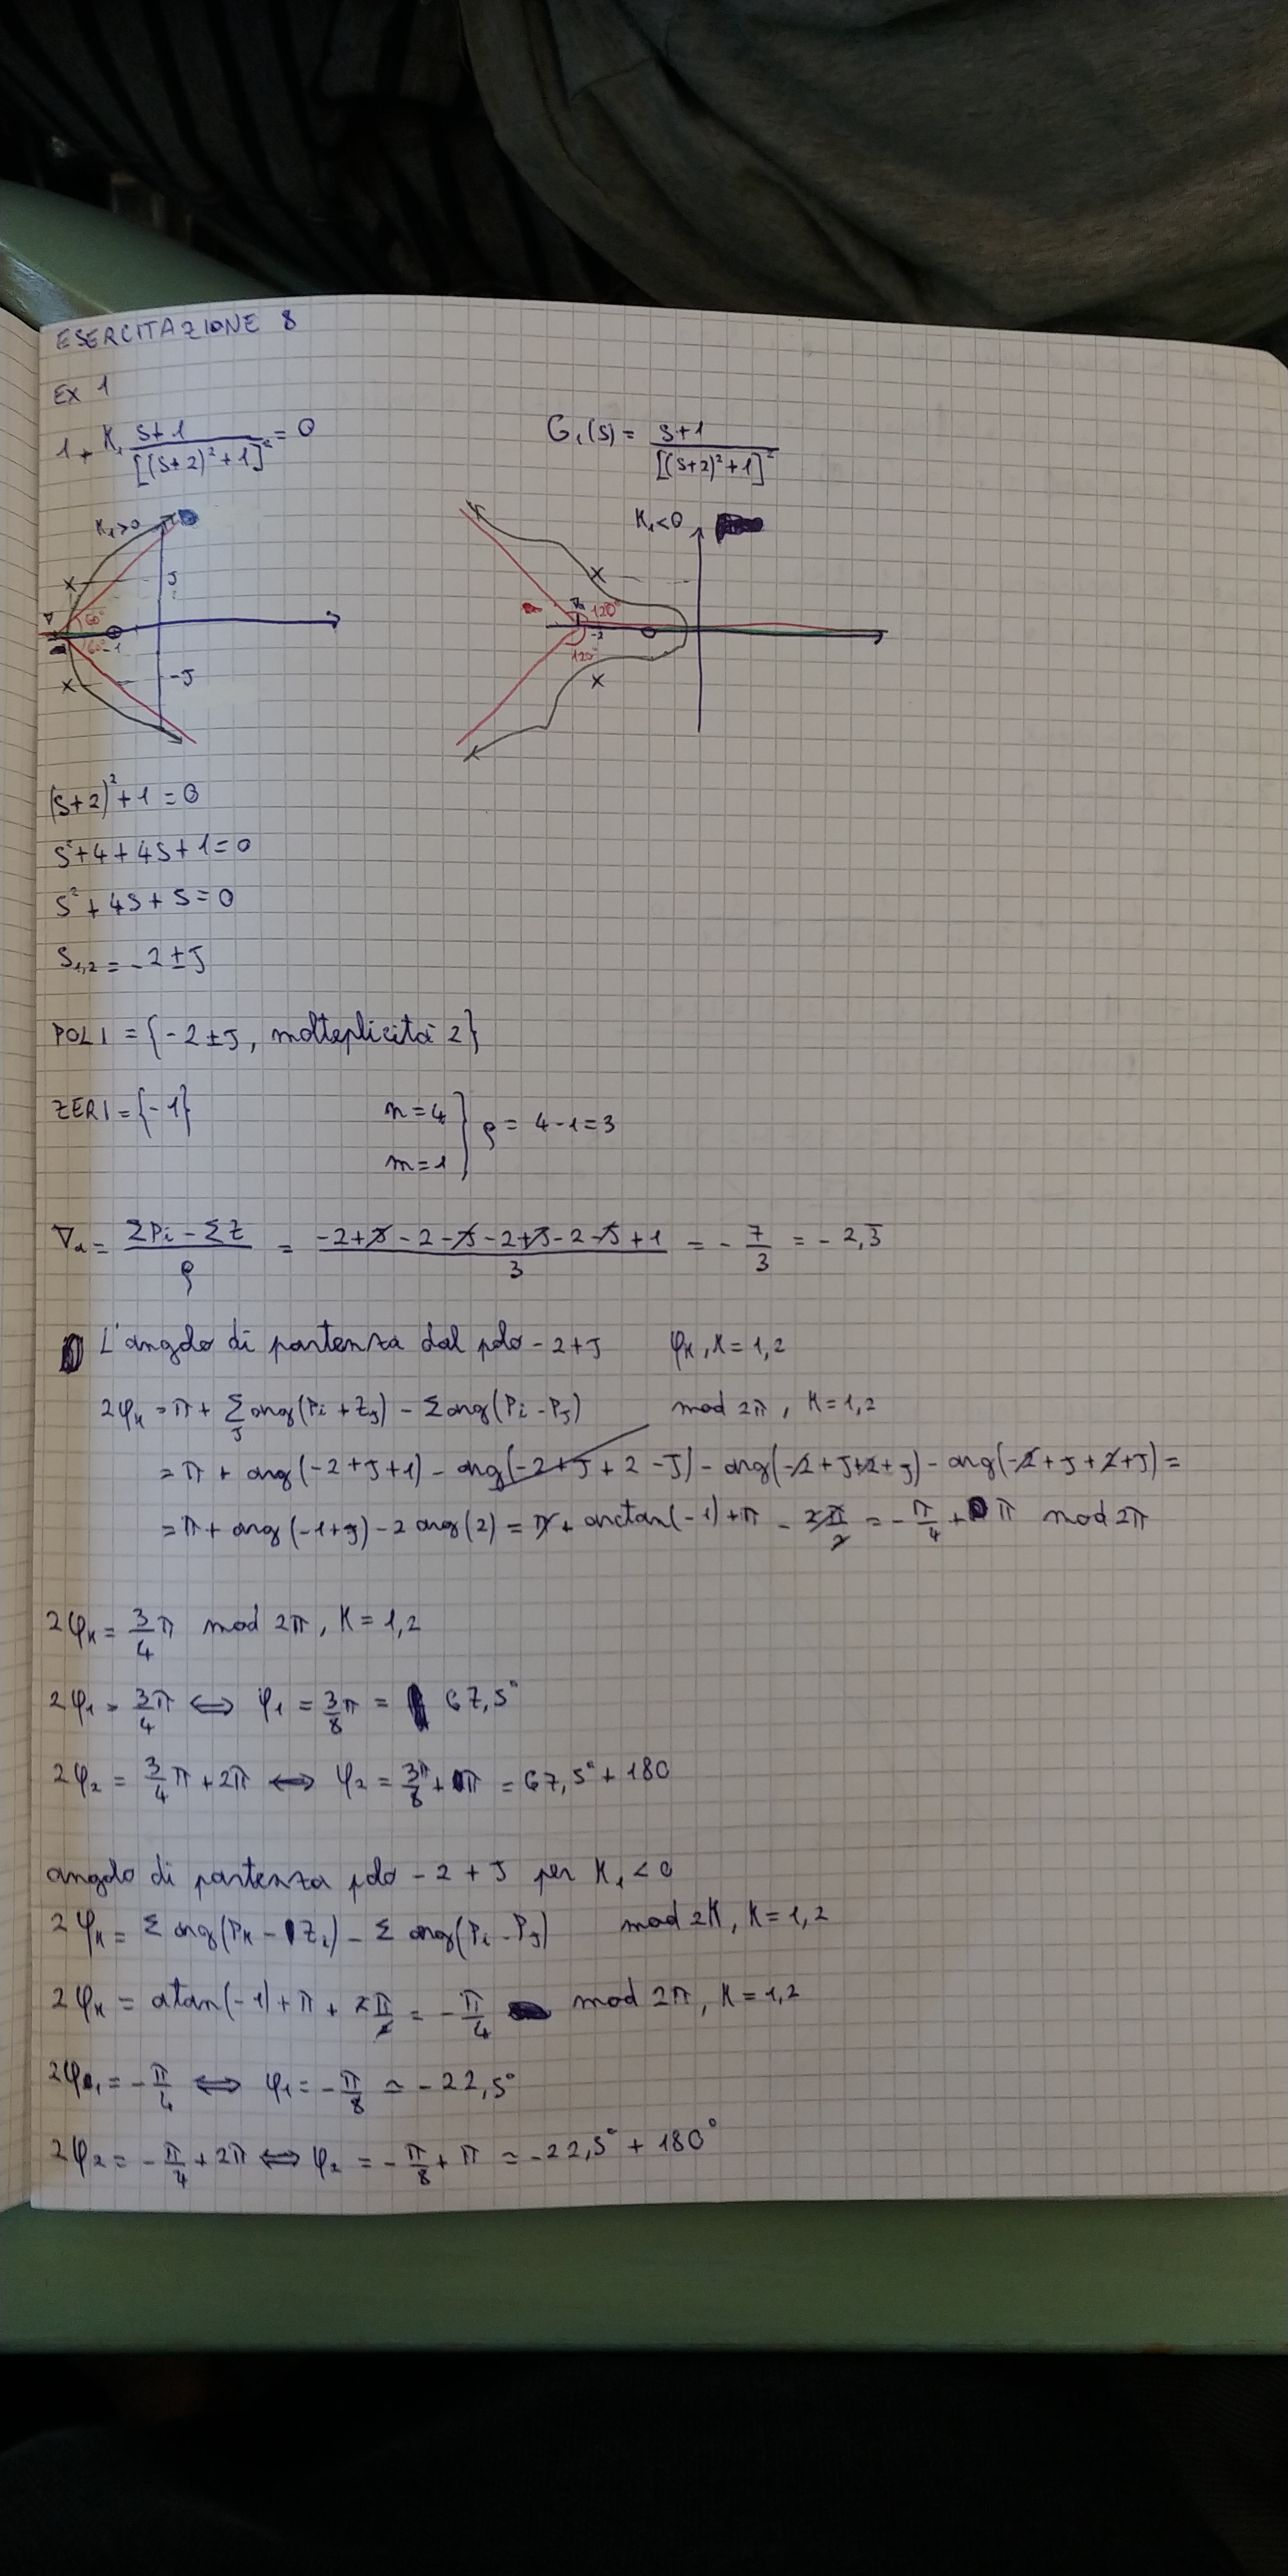 ESERCITAZIONE 8
EX 1
1 + K₁ (s+1)/[(s+2)²+1]² = 0
G₁(s) = (s+1)/[(s+2)²+1]²
K₁>0
K₁<0
j
60°
60°
-1
-j
120°
-2
120°
(s+2)²+1=0
s²+4+4s+1=0
s²+4s+5=0
s₁,₂=-2±j
POLI = {-2±j, molteplicità 2}
ZERI = {-1}
n=4
m=1
ρ = 4-1=3
∇a = (ΣPi - Σz)/ρ = (-2+j-2-j-2+j-2-j+1)/3 = -7/3 = -2,3
L'angolo di partenza dal polo -2+j φk, k=1,2
2φk = π + Σ arg(Pi+zj) - Σ arg(Pi-Pj) mod 2π, k=1,2
j
= π + arg(-2+j+1) - arg(-2+j+2-j) - arg(-2+j+2+j) - arg(-2+j+2+j) =
= π + arg(-1+j) - 2 arg(2) = π + arctan(-1)+π - 2π/2 = -π/4 + π mod 2π
2φk = 3/4 π mod 2π, k=1,2
2φ₁ = 3/4 π ⟺ φ₁ = 3/8 π = 67,5°
2φ₂ = 3/4 π + 2π ⟺ φ₂ = 3/8 π + π = 67,5° + 180
angolo di partenza polo -2+j per K₁<0
2φk = Σ arg(Pk - zi) - Σ arg(Pi-Pj) mod 2π, k=1,2
2φk = atan(-1)+π + 2π/2 = -π/4 mod 2π, k=1,2
2φ₁ = -π/4 ⟺ φ₁ = -π/8 = -22,5°
2φ₂ = -π/4 + 2π ⟺ φ₂ = -π/8 + π = -22,5° + 180°